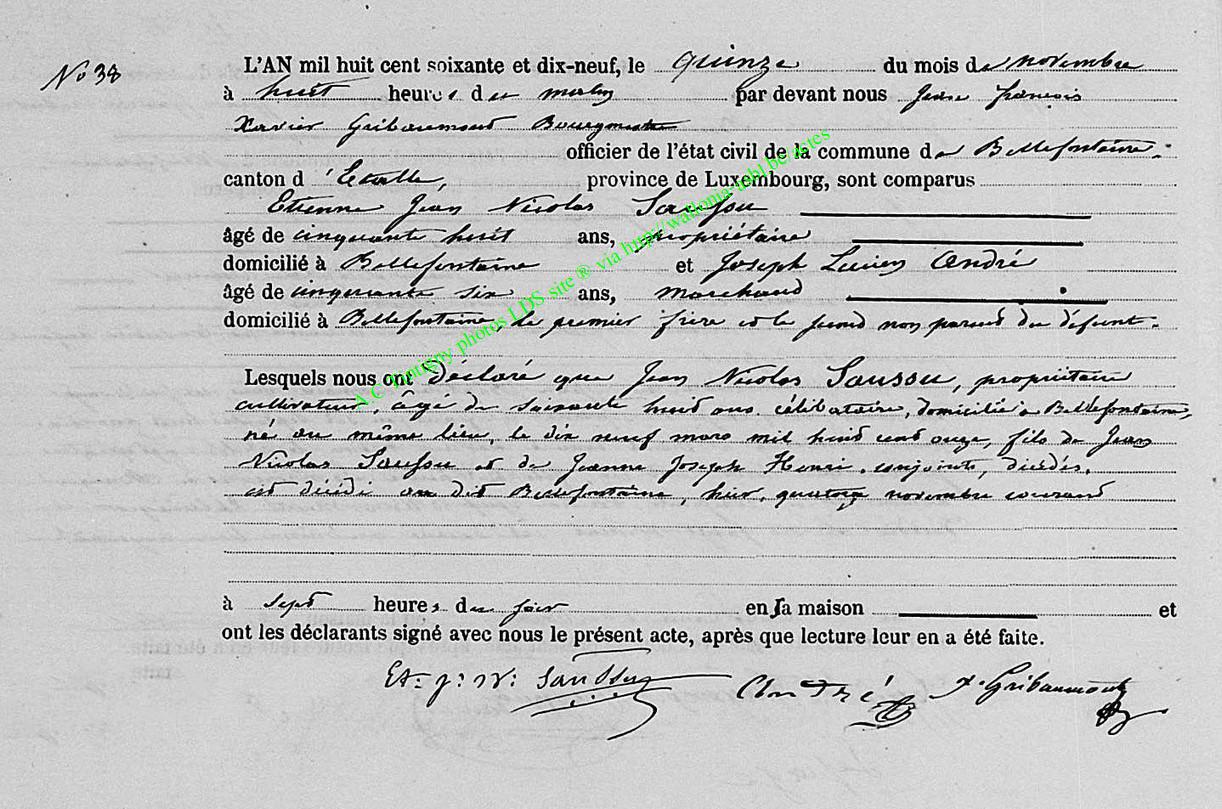 No 38
L'AN mil huit cent soixante et dix-neuf, le quinze du mois de novembre
à huit heures du matin par devant nous Jean françois
Xavier Gribaumont Bourgmestre
officier de l'état civil de la commune de Bellefontaine
canton d'Etalle, province de Luxembourg, sont comparus
Etienne Jean Nicolas Saussu
âgé de cinquante huit ans, propriétaire
domicilié à Bellefontaine et Joseph Lucien André
âgé de cinquante six ans, marchand
domicilié à Bellefontaine, le premier frère et le second non parent du défunt.
Lesquels nous ont déclaré que Jean Nicolas Saussu, propriétaire
cultivateur, âgé de soixante huit ans, célibataire, domicilié à Bellefontaine,
né au même lieu, le dix neuf mars mil huit cent onze, fils de Jean
Nicolas Saussu et de Jeanne Joseph Henri, conjoints, décédés,
est décédé au dit Bellefontaine, hier, quatorze novembre courant
à sept heures du soir en sa maison et
ont les déclarants signé avec nous le présent acte, après que lecture leur en a été faite.
Et. j. N. Saussu André X. Gribaumont
photos LDS site ® via http://wallonia-asbl.be/actes